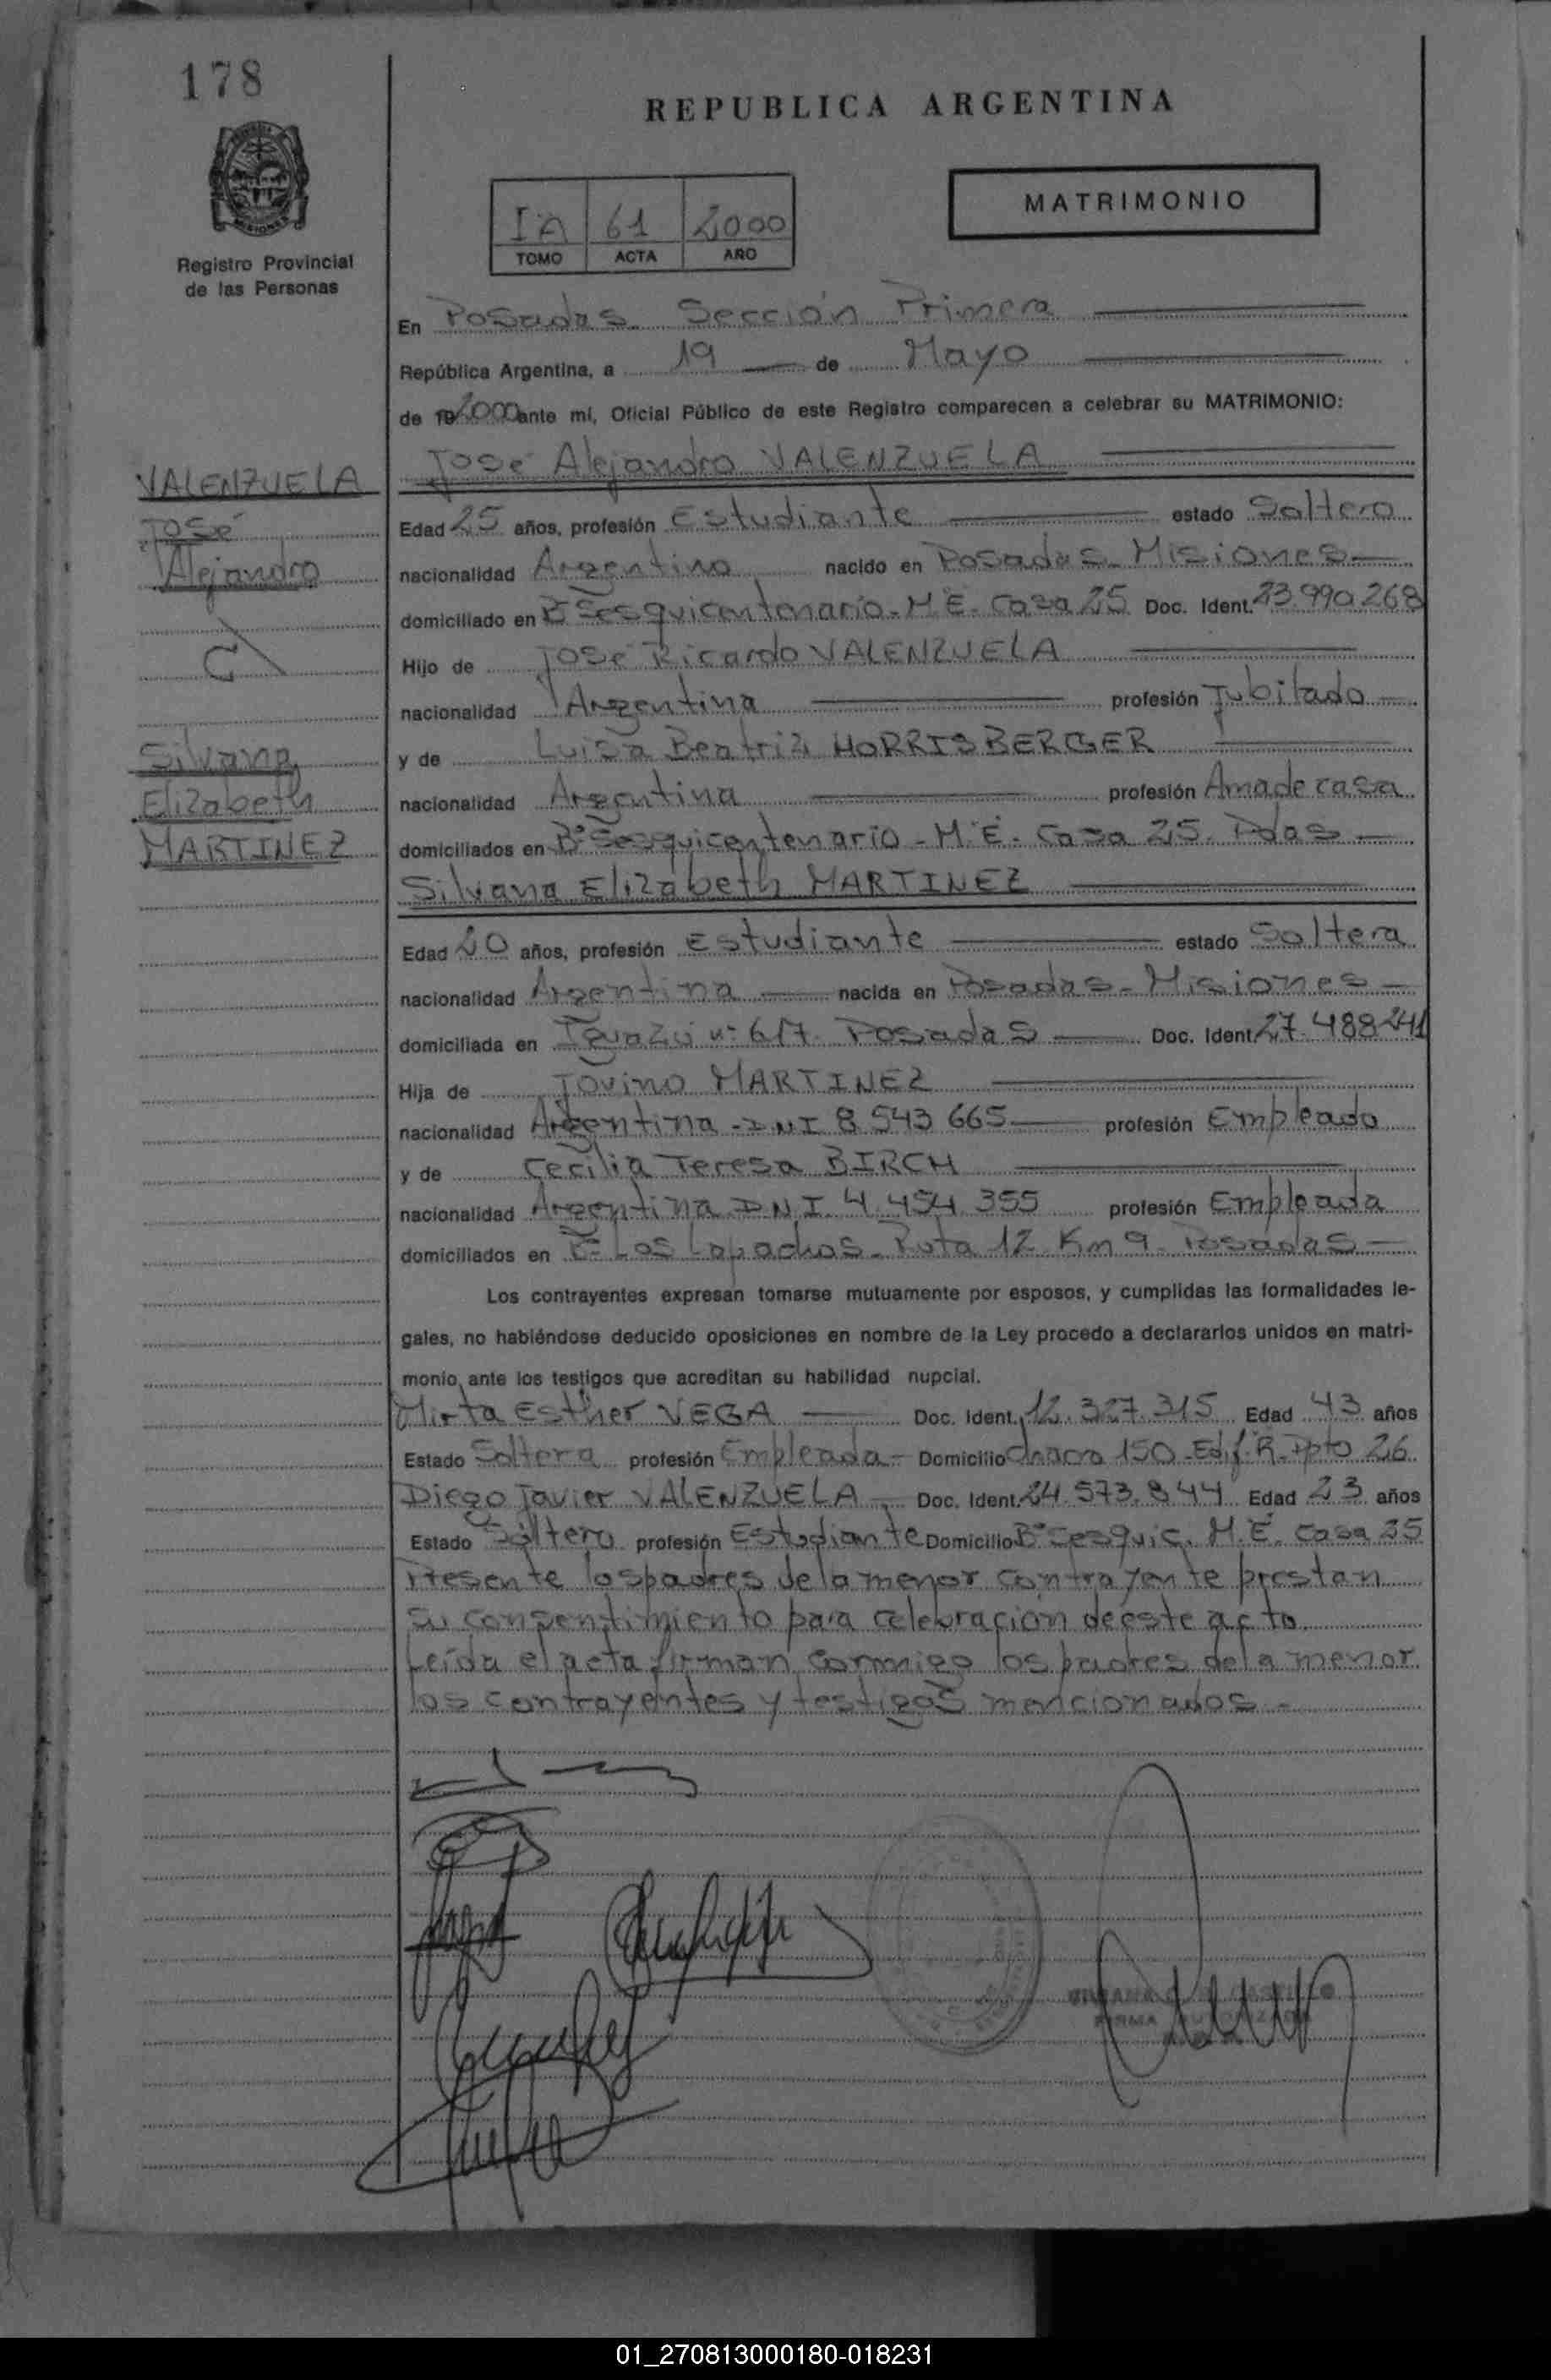 178
REPUBLICA ARGENTINA
MATRIMONIO
IA 61 2000
TOMO ACTA AÑO
Registro Provincial
de las Personas
En Posadas Sección Primera
República Argentina, a 19 de Mayo
de 19 2000 ante mí, Oficial Público de este Registro comparecen a celebrar su MATRIMONIO:
José Alejandro VALENZUELA
VALENZUELA
José
Alejandro
Edad 25 años, profesión Estudiante estado Soltero
nacionalidad Argentino nacido en Posadas - Misiones
domiciliado en Bº Sesquicentenario - M.E. Casa 25 Doc. Ident. 23.990.268
Hijo de José Ricardo VALENZUELA
nacionalidad Argentina profesión Jubilado
y de Luisa Beatriz HORRISBERGER
Silvana
Elizabeth
MARTINEZ
nacionalidad Argentina profesión Ama de casa
domiciliados en Bº Sesquicentenario - M.E. Casa 25. Pdas
Silvana Elizabeth MARTINEZ
Edad 20 años, profesión Estudiante estado Soltera
nacionalidad Argentina nacida en Posadas - Misiones
domiciliada en Iguazú nº 617. Posadas Doc. Ident. 27.488241
Hija de Jovino MARTINEZ
nacionalidad Argentina - DNI 8 543 665 profesión Empleado
y de Cecilia Teresa BIRCH
nacionalidad Argentina D.N.I. 4.454.355 profesión Empleada
domiciliados en Bº Los Lapachos - Ruta 12 Km 9 - Posadas
Los contrayentes expresan tomarse mutuamente por esposos, y cumplidas las formalidades le-
gales, no habiéndose deducido oposiciones en nombre de la Ley procedo a declararlos unidos en matri-
monio, ante los testigos que acreditan su habilidad nupcial.
Mirta Esther VEGA Doc. Ident. 12.327.315 Edad 43 años
Estado Soltera profesión Empleada - Domicilio Chacra 150 - Edif. R - Dpto 26
Diego Javier VALENZUELA Doc. Ident. 24.573.844 Edad 23 años
Estado Soltero profesión Estudiante Domicilio Bº Sesquic. M.E. Casa 25
Presente los padres de la menor contrayente prestan
su consentimiento para celebración de este acto
Leída el acta firman conmigo los padres de la menor
los contrayentes y testigos mencionados -
FIRMA
01_270813000180-018231